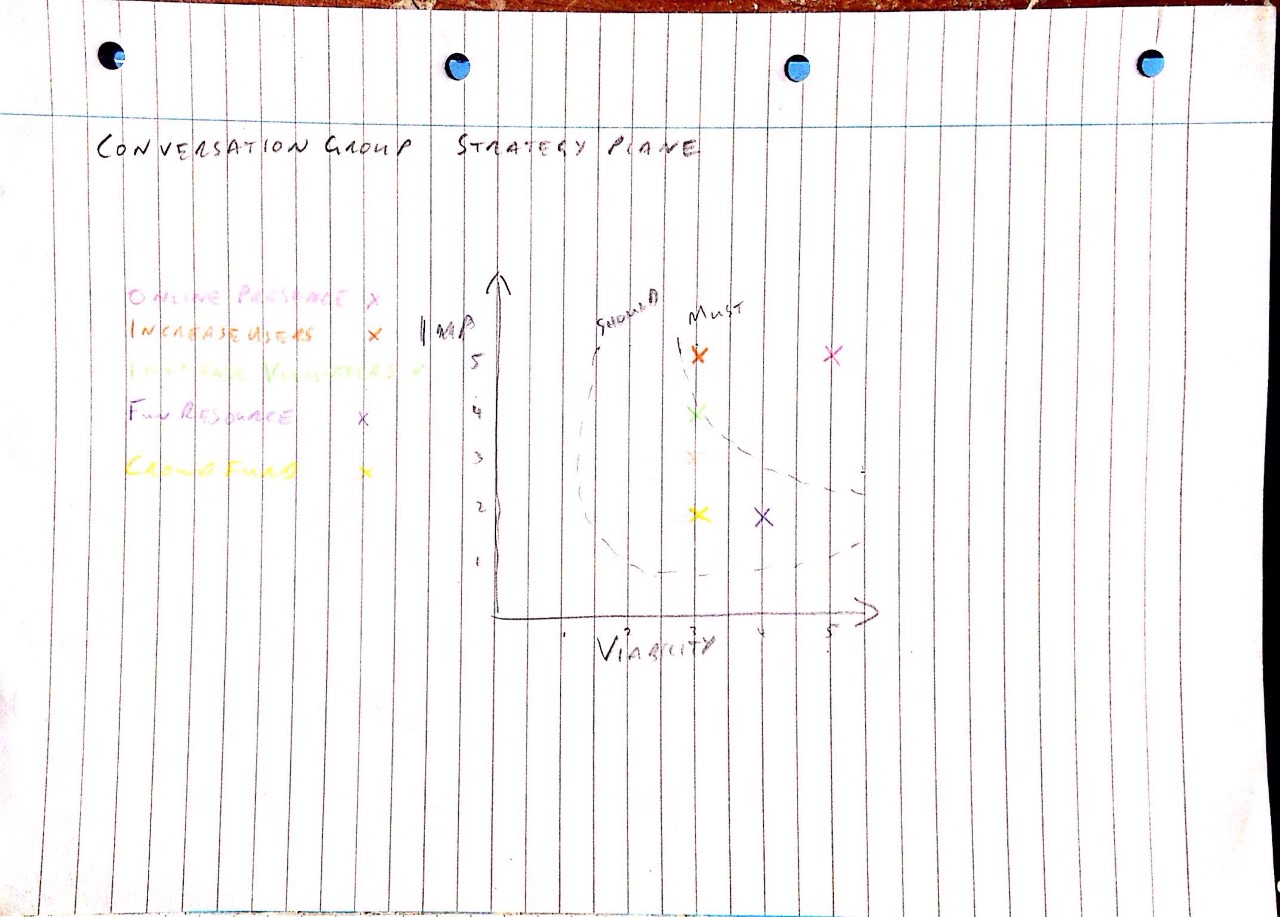 CONVERSATION GROUP STRATERY PLANE
ONLINE PRESENCE X
INCREASE USERS X
VOLUNTEERS X
FUN RESOURCE X
CROWD FUND X
IMP
SHOULD
MUST
5
4
3
2
1
1 2 3 4 5
VIABILITY